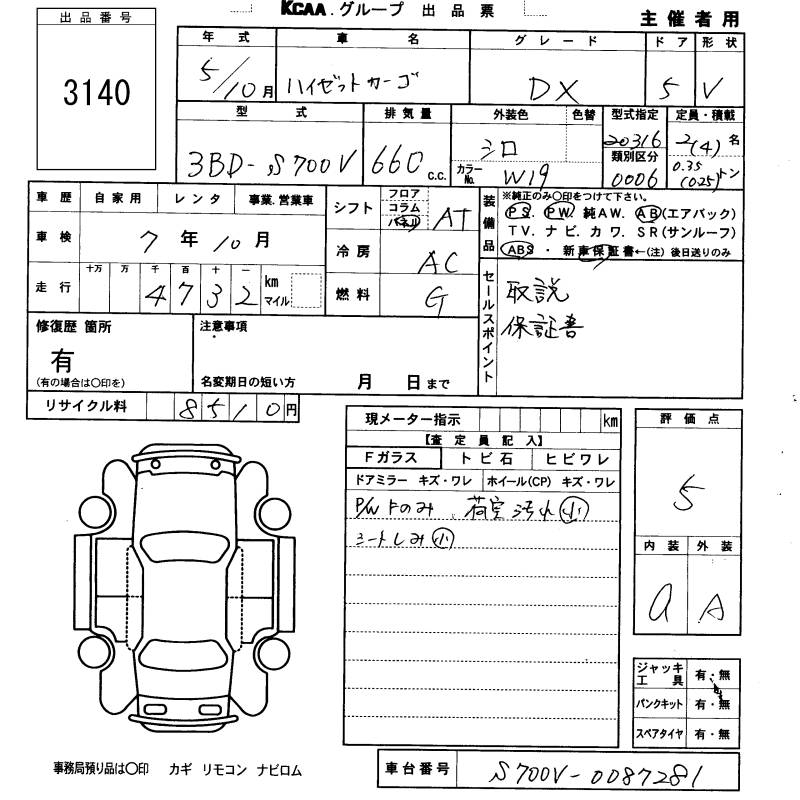 KCAA.グループ 出品票
主催者用
出品番号
3140
年式 車名 グレード ドア 形状
5/10月 ハイゼットカーゴ DX 5 V
型式 排気量 外装色 色替 型式指定 定員・積載
3BD-S700V 660c.c. シロ 20316 2(4)名
カラーNo. W19 類別区分 0006 0.35(0.25)トン
車歴 自家用 レンタ 事業.営業車
車検 7年10月
走行 十万 万 千 百 十 一
4732 km マイル
シフト フロア コラム パネル AT
冷房 AC
燃料 G
装備品
※純正のみ〇印をつけて下さい。
PS. PW. 純AW. AB(エアバック)
TV. ナビ. カワ. SR(サンルーフ)
ABS ・ 新車保証書←(注) 後日送りのみ
セールスポイント
取説
保証書
修復歴 箇所
有
(有の場合は〇印を)
注意事項
名変期日の短い方 月 日まで
リサイクル料 8510円
現メーター指示 km
【査定員記入】
Fガラス トビ石 ヒビワレ
ドアミラー キズ・ワレ ホイール(CP) キズ・ワレ
P/W Fのみ 荷室汚れ(小)
シートしみ(小)
評価点
5
内装 外装
a A
ジャッキ工具 有・無
パンクキット 有・無
スペアタイヤ 有・無
事務局預り品は〇印 カギ リモコン ナビロム
車台番号 S700V-0087281